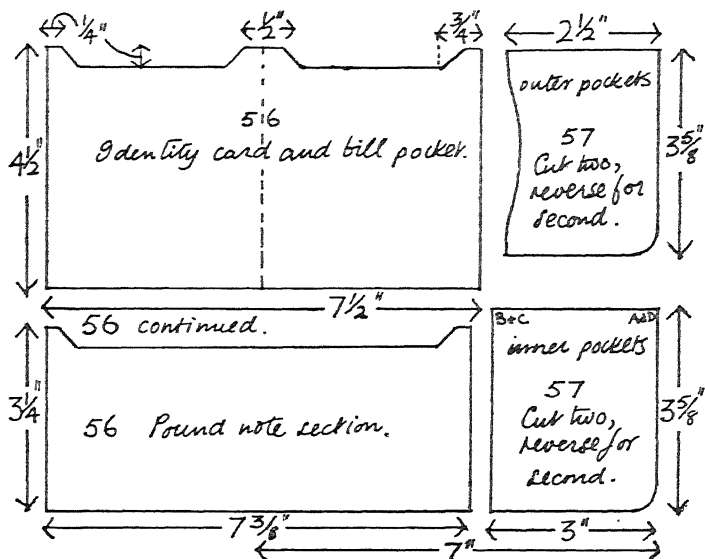 1/4"
1/2"
3/4"
2 1/2"
4 1/2"
56
Identity card and bill pocket.
outer pockets
57
Cut two,
reverse for
second.
3 5/8"
7 1/2"
56 continued.
3 1/4"
56 Pound note section.
B+C
A+D
inner pockets
57
Cut two,
reverse for
second.
3 5/8"
7 3/8"
3"
7"